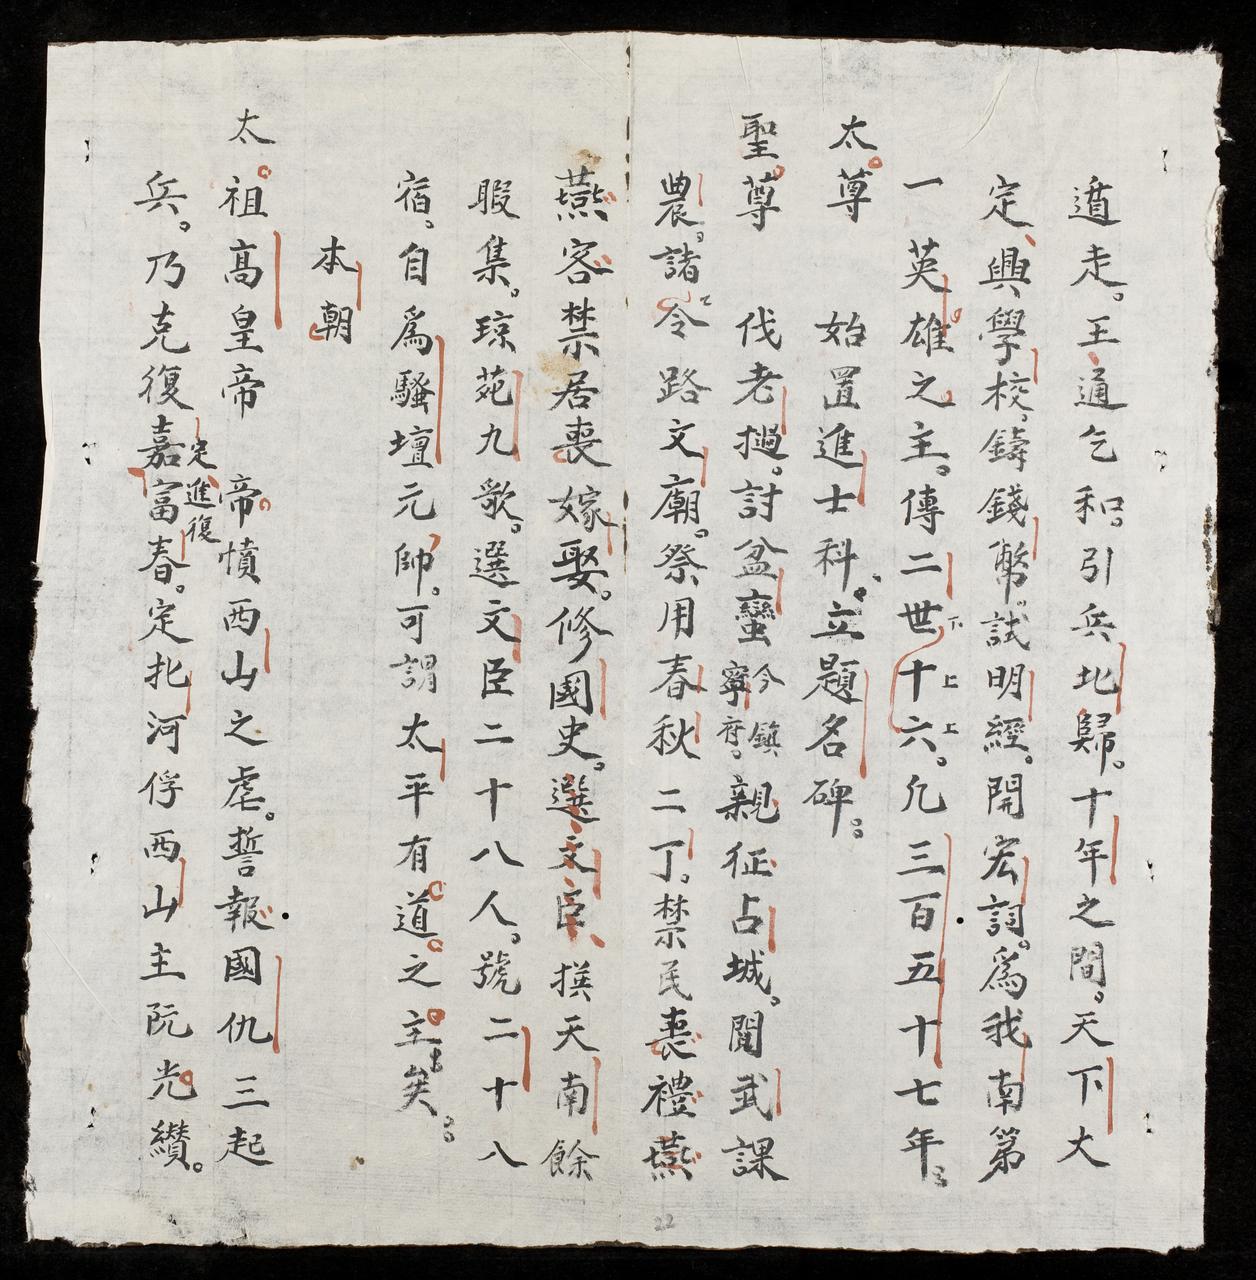 遁走。王通乞和。引兵北歸。十年之間。天下大
定、興學校。鑄錢幣。試明經。開宏詞。爲我南第
一英雄之主。傳二世下十上六上。凢三百五十七年。
太尊 始置進士科。立題名碑。
聖尊 伐老撾。討盆蠻今鎮寧府。親征占城。閱武課
農。諸令路文廟。祭用春秋二丁。禁民喪禮燕
燕客禁居喪嫁娶。修國史。選文臣、撰天南餘
暇集。琼苑九歌。選文臣二十八人。號二十八
宿。自爲騷壇元帥。可謂太平有道之主矣。
本朝
太祖高皇帝 帝憤西山之虐。誓報國仇三起
兵。乃克復嘉富春。定北河俘西山主阮光纘。
定進復
22